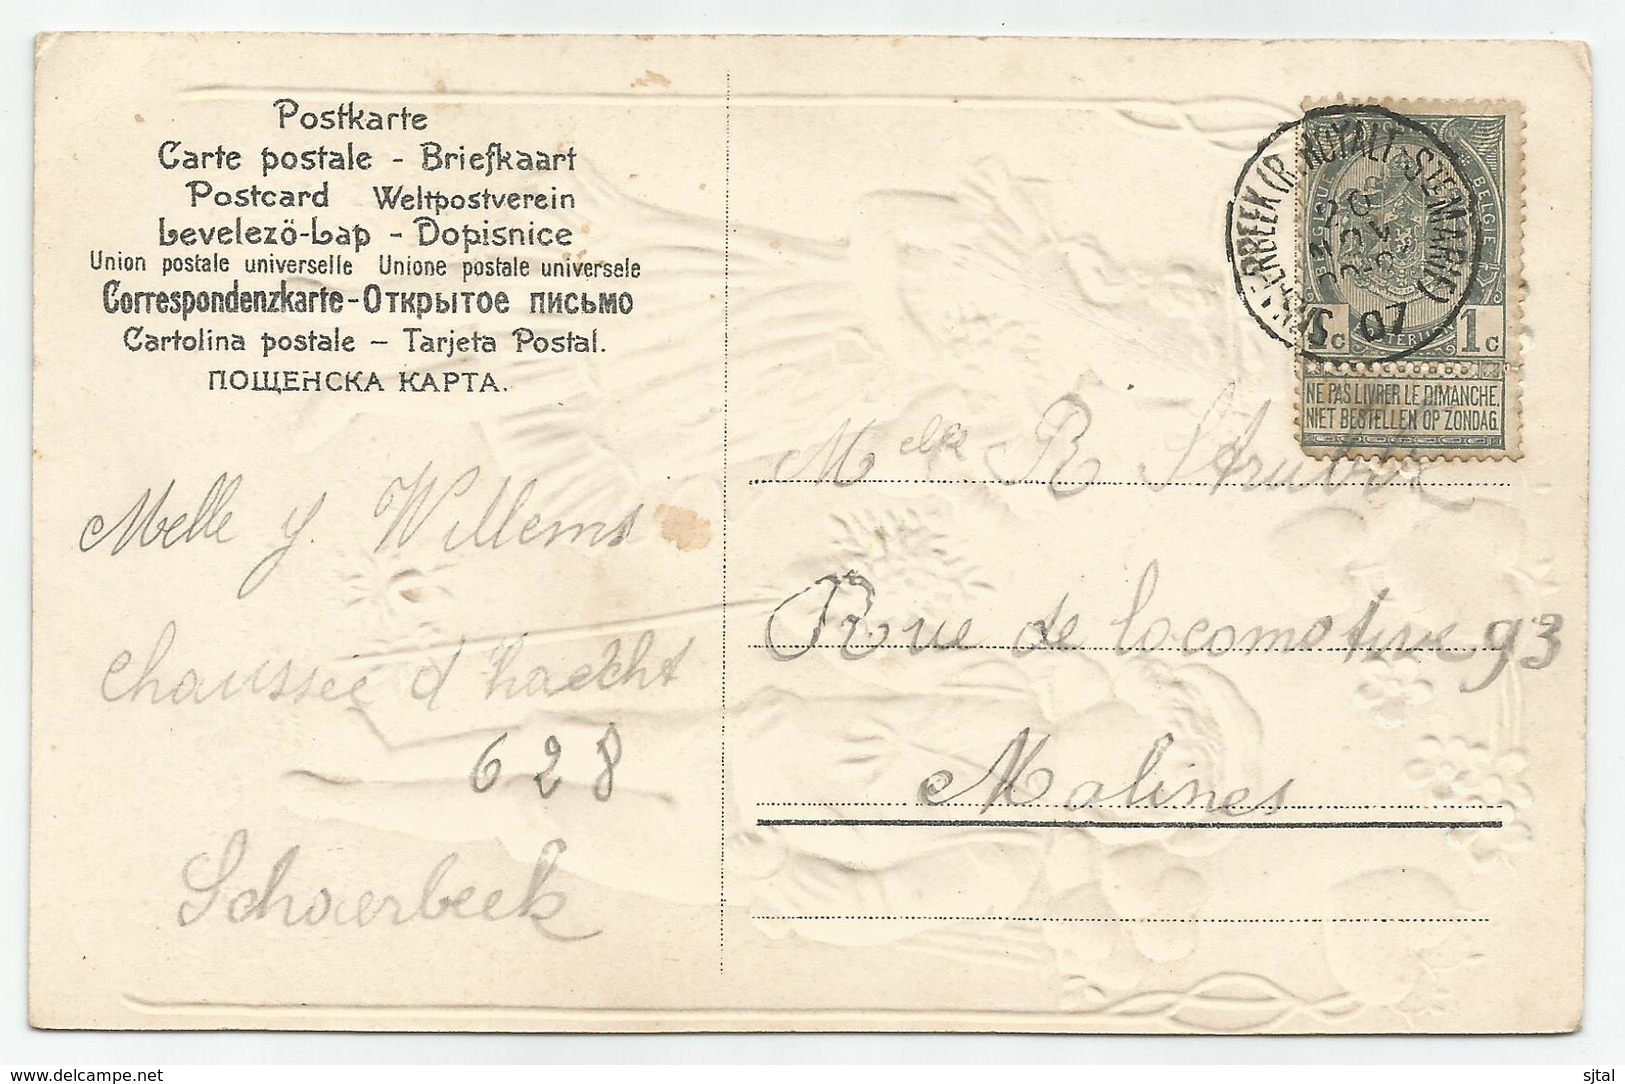 Postkarte
Carte postale - Briefkaart
Postcard Weltpostverein
Levelező-Lap - Dopisnice
Union postale universelle Unione postale universale
Correspondenzkarte-Открытое письмо
Cartolina postale – Tarjeta Postal.
ПОЩЕНСКА КАРТА.
Melle y. Willems
chaussee d'haecht
628
Schaerbeek
BELGIE
1c 1c
NE PAS LIVRER LE DIMANCHE.
NIET BESTELLEN OP ZONDAG.
07
Melle R Strubbe
Rue de locomotive 93
Malines
www.delcampe.net
sjtal